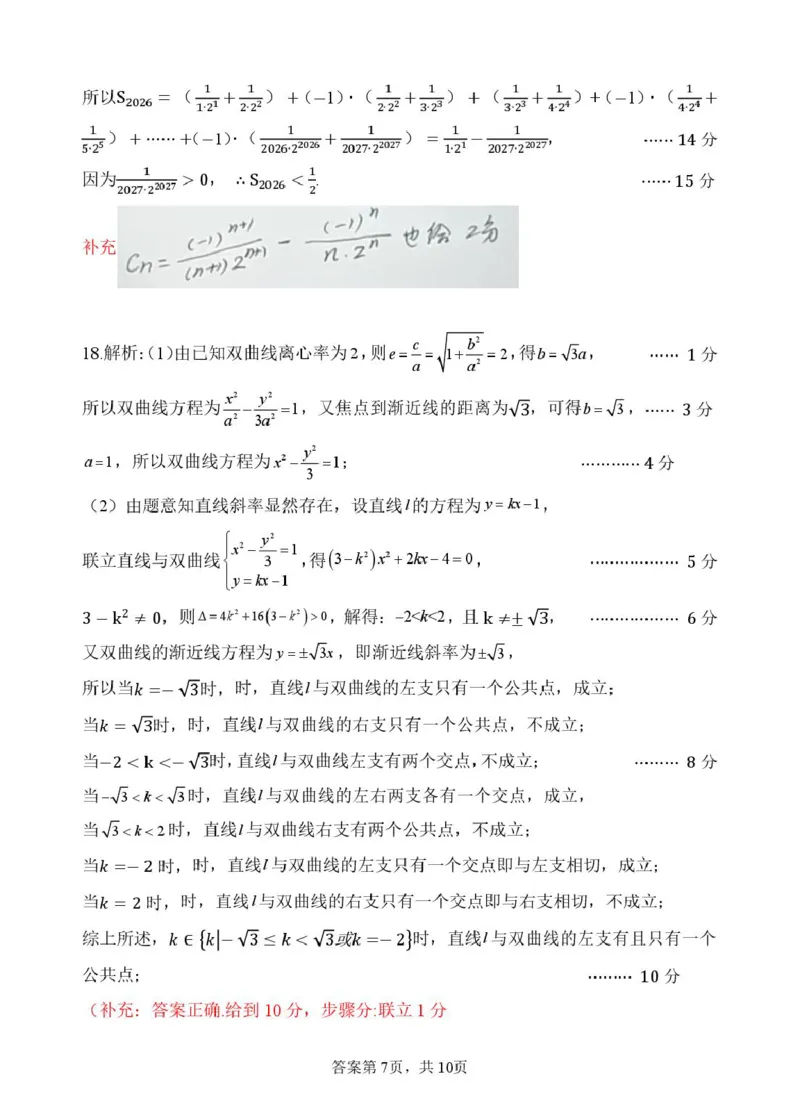 所以S₂₀₂₆ = （1/(1·2¹) + 1/(2·2²)）+(−1)·（1/(2·2²) + 1/(3·2³)）+（1/(3·2³) + 1/(4·2⁴)）+(−1)·（1/(4·2⁴) +
1/(5·2⁵)）+······+(−1)·（1/(2026·2²⁰²⁶) + 1/(2027·2²⁰²⁷)）= 1/(1·2¹) − 1/(2027·2²⁰²⁷), ······14 分
因为1/(2027·2²⁰²⁷) > 0， ∴S₂₀₂₆ < 1/2. ······15 分
补充 Cn = (-1)ⁿ⁺¹/((n+1)2ⁿ⁺¹) − (-1)ⁿ/(n·2ⁿ) 也给 2分
18.解析：（1）由已知双曲线离心率为2，则e= c/a = √(1+b²/a²) = 2，得b= √3a， ······ 1 分
所以双曲线方程为 x²/a² − y²/3a² =1，又焦点到渐近线的距离为 √3，可得b= √3，······ 3 分
a=1，所以双曲线方程为x²− y²/3 =1； ············ 4 分
（2）由题意知直线斜率显然存在，设直线l的方程为y= kx−1，
联立直线与双曲线 { x²− y²/3 =1 y= kx−1 ，得(3−k²)x²+2kx−4=0， ·················· 5 分
3 − k² ≠ 0，则Δ=4k²+16(3−k²)>0，解得：−2<k<2，且 k ≠± √3， ·················· 6 分
又双曲线的渐近线方程为y=± √3x，即渐近线斜率为± √3，
所以当k =− √3时，时，直线l与双曲线的左支只有一个公共点，成立；
当k = √3时，时，直线l与双曲线的右支只有一个公共点，不成立；
当−2 < k <− √3时，直线l与双曲线左支有两个交点，不成立； ········· 8 分
当− √3<k< √3时，直线l与双曲线的左右两支各有一个交点，成立，
当 √3<k<2时，直线l与双曲线右支有两个公共点，不成立；
当k =− 2 时，时，直线l与双曲线的左支只有一个交点即与左支相切，成立；
当k = 2 时，时，直线l与双曲线的右支只有一个交点即与右支相切，不成立；
综上所述，k ∈ {k|− √3 ≤ k < √3或k =− 2}时，直线l与双曲线的左支有且只有一个
公共点； ········· 10 分
（补充：答案正确.给到 10 分，步骤分:联立 1 分
答案第 7页，共 10页